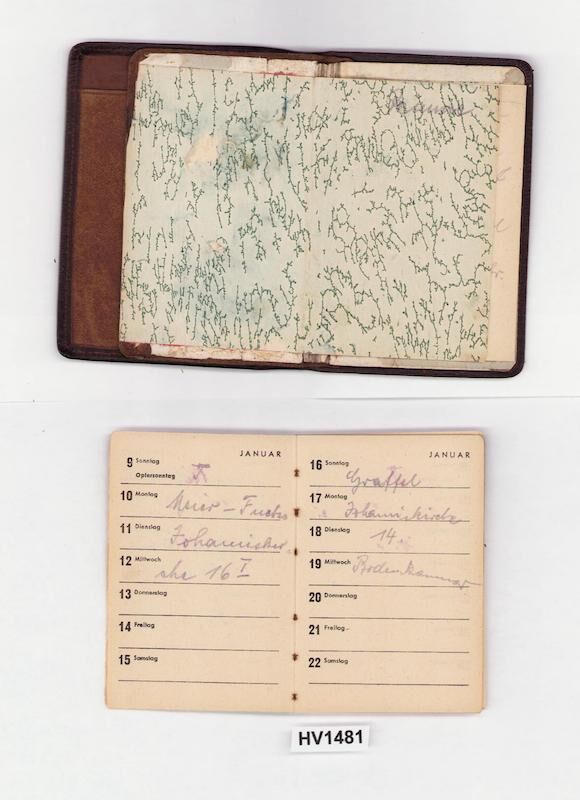 JANUAR
9 Sonntag
Opfersonntag
10 Montag
Meier - Fuchs
11 Dienstag
12 Mittwoch
16 I
13 Donnerstag
14 Freitag
15 Samstag
JANUAR
16 Sonntag
Graffel
17 Montag
Johanniskirche
18 Dienstag
14
19 Mittwoch
Bodenkammer
20 Donnerstag
21 Freitag
22 Samstag
HV1481